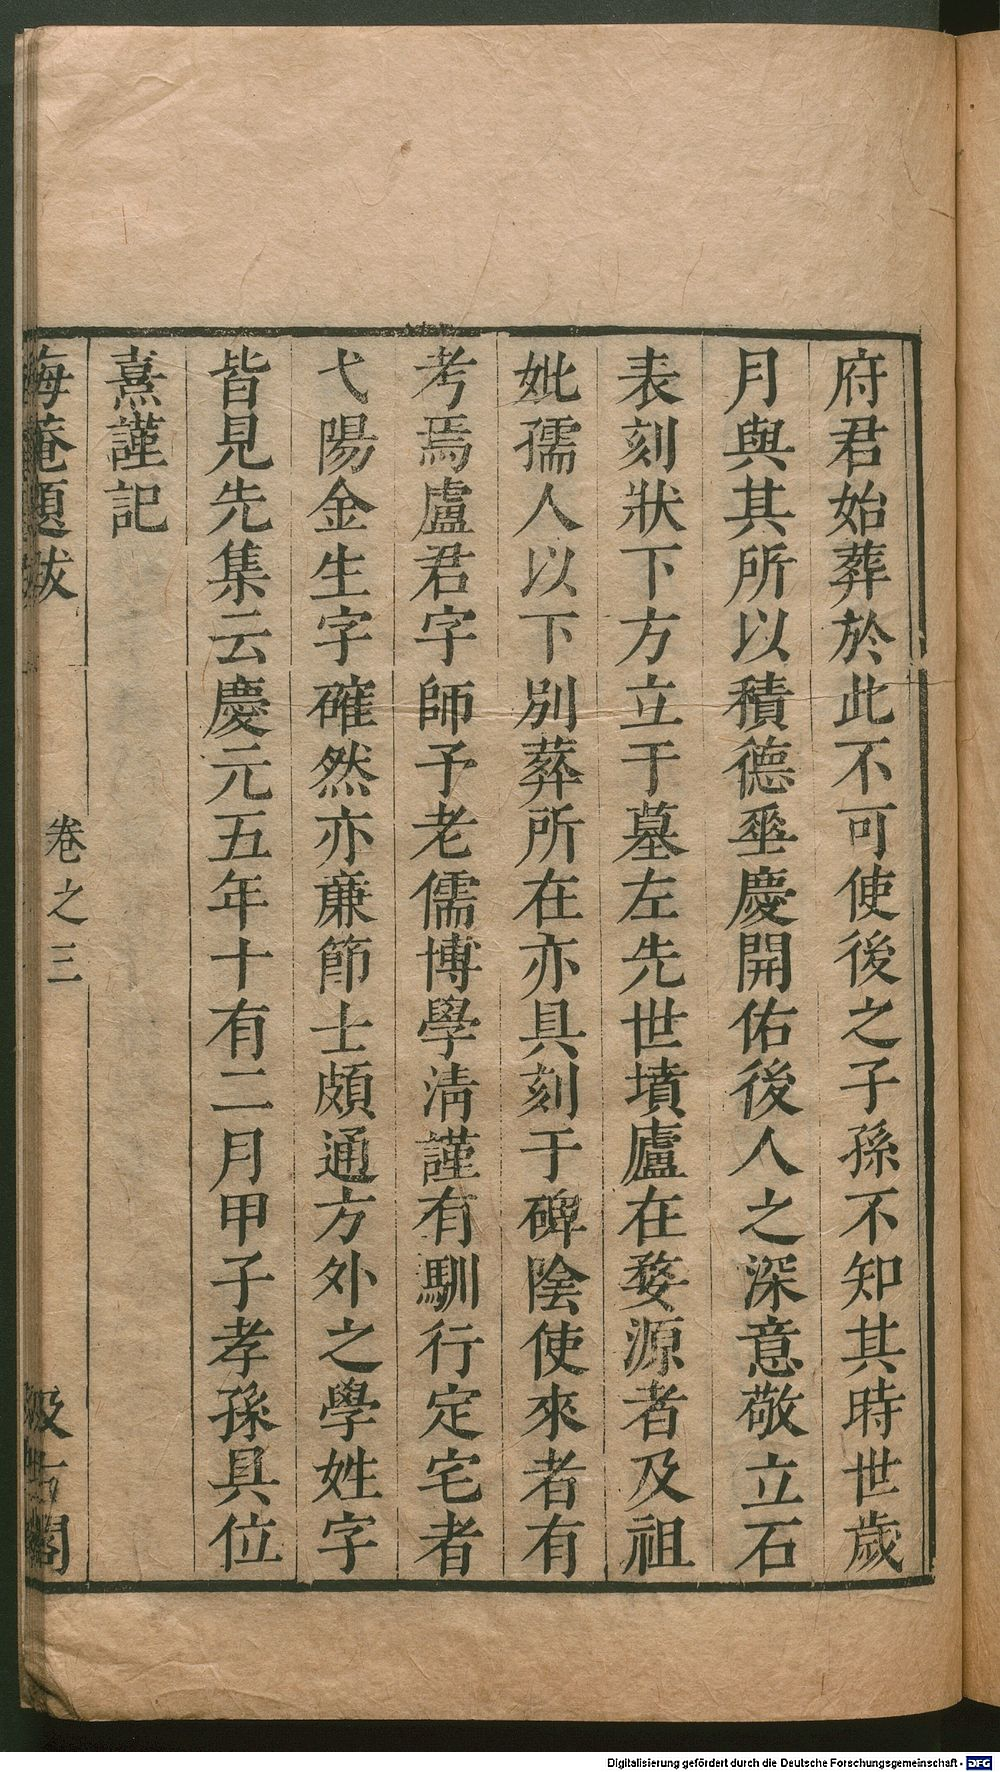 府君始葬於此不可使後之子孫不知其時世歲
月與其所以積德埀慶開佑後人之深意敬立石
表刻狀下方立于墓左先世墳廬在婺源者及祖
妣孺人以下別葬所在亦具刻于碑陰使來者有
考焉盧君字師予老儒博學淸謹有馴行定宅者
弋陽金生字確然亦廉節士頗通方外之學姓字
皆見先集云慶元五年十有二月甲子孝孫具位
熹謹記
晦菴題跋 卷之三 汲古閣
Digitalisierung gefördert durch die Deutsche Forschungsgemeinschaft - DFG